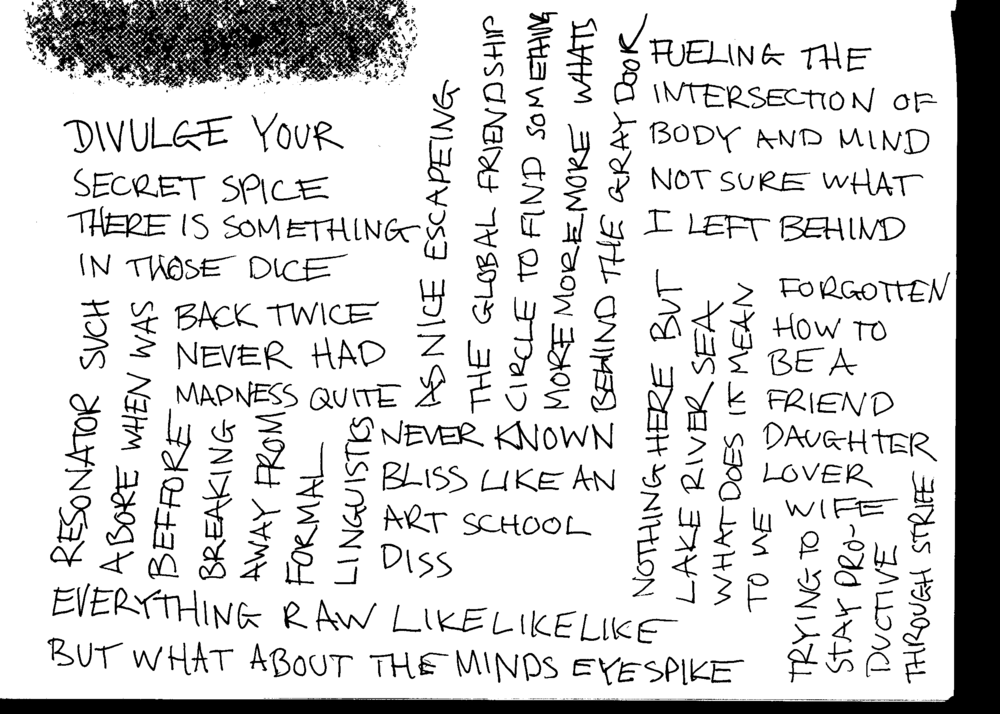 DIVULGE YOUR
SECRET SPICE
THERE IS SOMETHING
IN THOSE DICE
BACK TWICE
NEVER HAD
MADNESS QUITE
AS NICE ESCAPEING
THE GLOBAL FRIENDSHIP
CIRCLE TO FIND SOMETHING
MORE MORE MORE WHATS
BEHIND THE GRAY DOOR
FUELING THE
INTERSECTION OF
BODY AND MIND
NOT SURE WHAT
I LEFT BEHIND
RESONATOR SUCH
ABORE WHEN WAS
BEFFORE
BREAKING
AWAY FROM
FORMAL
LINGUISTICS
NEVER KNOWN
BLISS LIKE AN
ART SCHOOL
DISS
NOTHING HERE BUT
LAKE RIVER SEA
WHAT DOES IT MEAN
TO ME
FORGOTTEN
HOW TO
BE A
FRIEND
DAUGHTER
LOVER
WIFE
TRYING TO
STAY PRO-
DUCTIVE
THROUGH STRIFE
EVERYTHING RAW LIKELIKELIKE
BUT WHAT ABOUT THE MINDS EYESPIKE